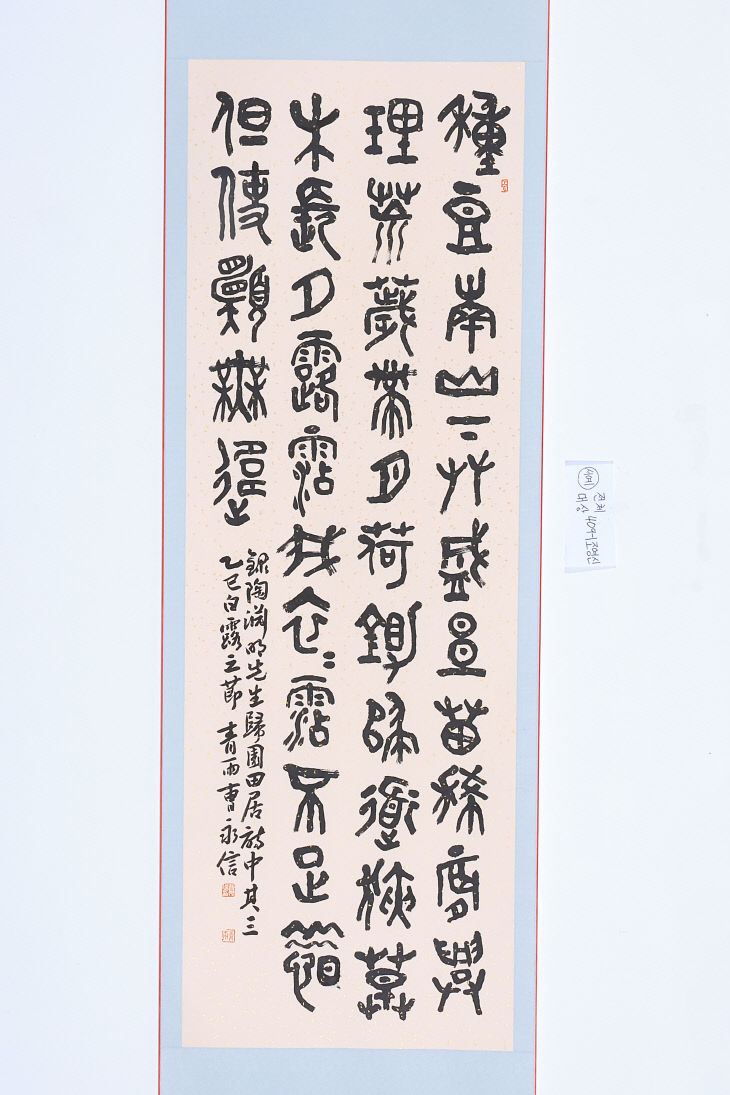 種豆南山下艸盛豆苗稀晨興
理荒薉帶月荷鋤歸道狹草
木長夕露霑我衣〻霑不足惜
但使願無違
錄陶淵明先生歸園田居詩中其三
乙巳白露之節 青雨曺永信
전체 409-1 조영신
서예 대상